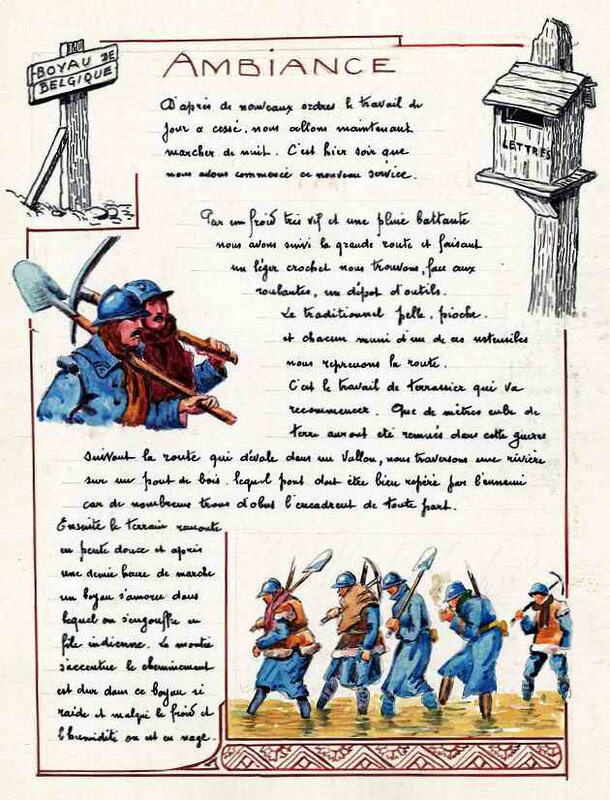 BOYAU DE
BELGIQUE
AMBIANCE
LETTRES
D'après de nouveaux ordres le travail de
jour a cessé, nous allons maintenant
marcher de nuit. C'est hier soir que
nous avons commencé ce nouveau service.
Par un froid très vif et une pluie battante
nous avons suivi la grande route et faisant
un léger crochet nous trouvons, face aux
roulantes, un dépot d'outils.
Le traditionnel pelle, pioche.
et chacun muni d'un de ces ustensiles
nous reprenons la route.
C'est le travail de terrassier qui va
recommencer. Que de mètres cube de
terre auront été remués dans cette guerre
suivant la route qui dévale dans un vallon, nous traversons une rivière
sur un pont de bois, lequel pont doit être bien repéré par l'ennemi
car de nombreux trous d'obus l'encadrent de toute part.
Ensuite le terrain remonte
en pente douce et après
une demie heure de marche
un boyau s'amorce dans
lequel on s'engouffre en
file indienne. La montée
s'accentue le cheminement
est dur dans ce boyau si
raide et malgré le froid et
l'humidité on est en nage.